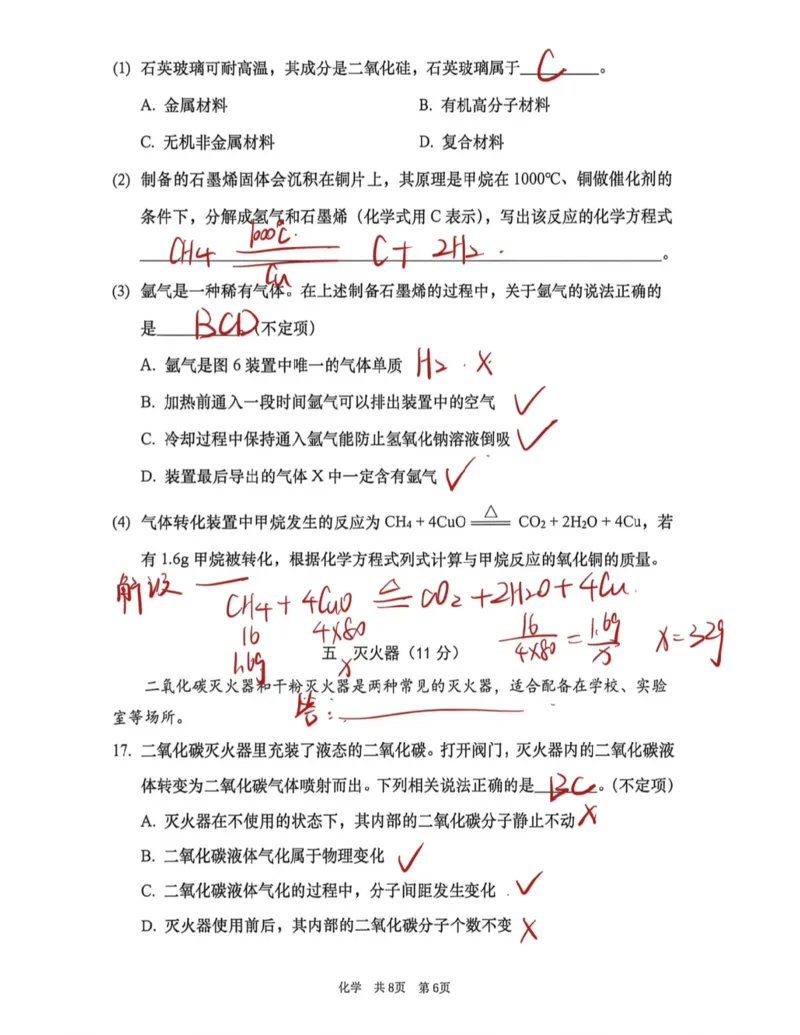 (1) 石英玻璃可耐高温，其成分是二氧化硅，石英玻璃属于 C 。
A. 金属材料 B. 有机高分子材料
C. 无机非金属材料 D. 复合材料
(2) 制备的石墨烯固体会沉积在铜片上，其原理是甲烷在 1000℃、铜做催化剂的
条件下，分解成氢气和石墨烯（化学式用 C 表示），写出该反应的化学方程式
1000℃
CH4 ═══ C + 2H2 。
Cu
(3) 氩气是一种稀有气体。在上述制备石墨烯的过程中，关于氩气的说法正确的
是 BCD (不定项）
A. 氩气是图 6 装置中唯一的气体单质 H2 . ×
B. 加热前通入一段时间氩气可以排出装置中的空气 ✓
C. 冷却过程中保持通入氩气能防止氢氧化钠溶液倒吸 ✓
D. 装置最后导出的气体 X 中一定含有氩气 ✓
(4) 气体转化装置中甲烷发生的反应为 CH4 + 4CuO ══△══ CO2 + 2H2O + 4Cu，若
有 1.6g 甲烷被转化，根据化学方程式列式计算与甲烷反应的氧化铜的质量。
解 设 —— CH4 + 4CuO ══△══ CO2 + 2H2O + 4Cu.
16 4×80 16/4×80 = 1.6g/x x=32g
1.6g x
五 灭火器（11 分）
二氧化碳灭火器和干粉灭火器是两种常见的灭火器，适合配备在学校、实验
室等场所。 答：
17. 二氧化碳灭火器里充装了液态的二氧化碳。打开阀门，灭火器内的二氧化碳液
体转变为二氧化碳气体喷射而出。下列相关说法正确的是 BC 。（不定项）
A. 灭火器在不使用的状态下，其内部的二氧化碳分子静止不动 ×
B. 二氧化碳液体气化属于物理变化 ✓
C. 二氧化碳液体气化的过程中，分子间距发生变化 ✓
D. 灭火器使用前后，其内部的二氧化碳分子个数不变 ×
化学 共8页 第6页